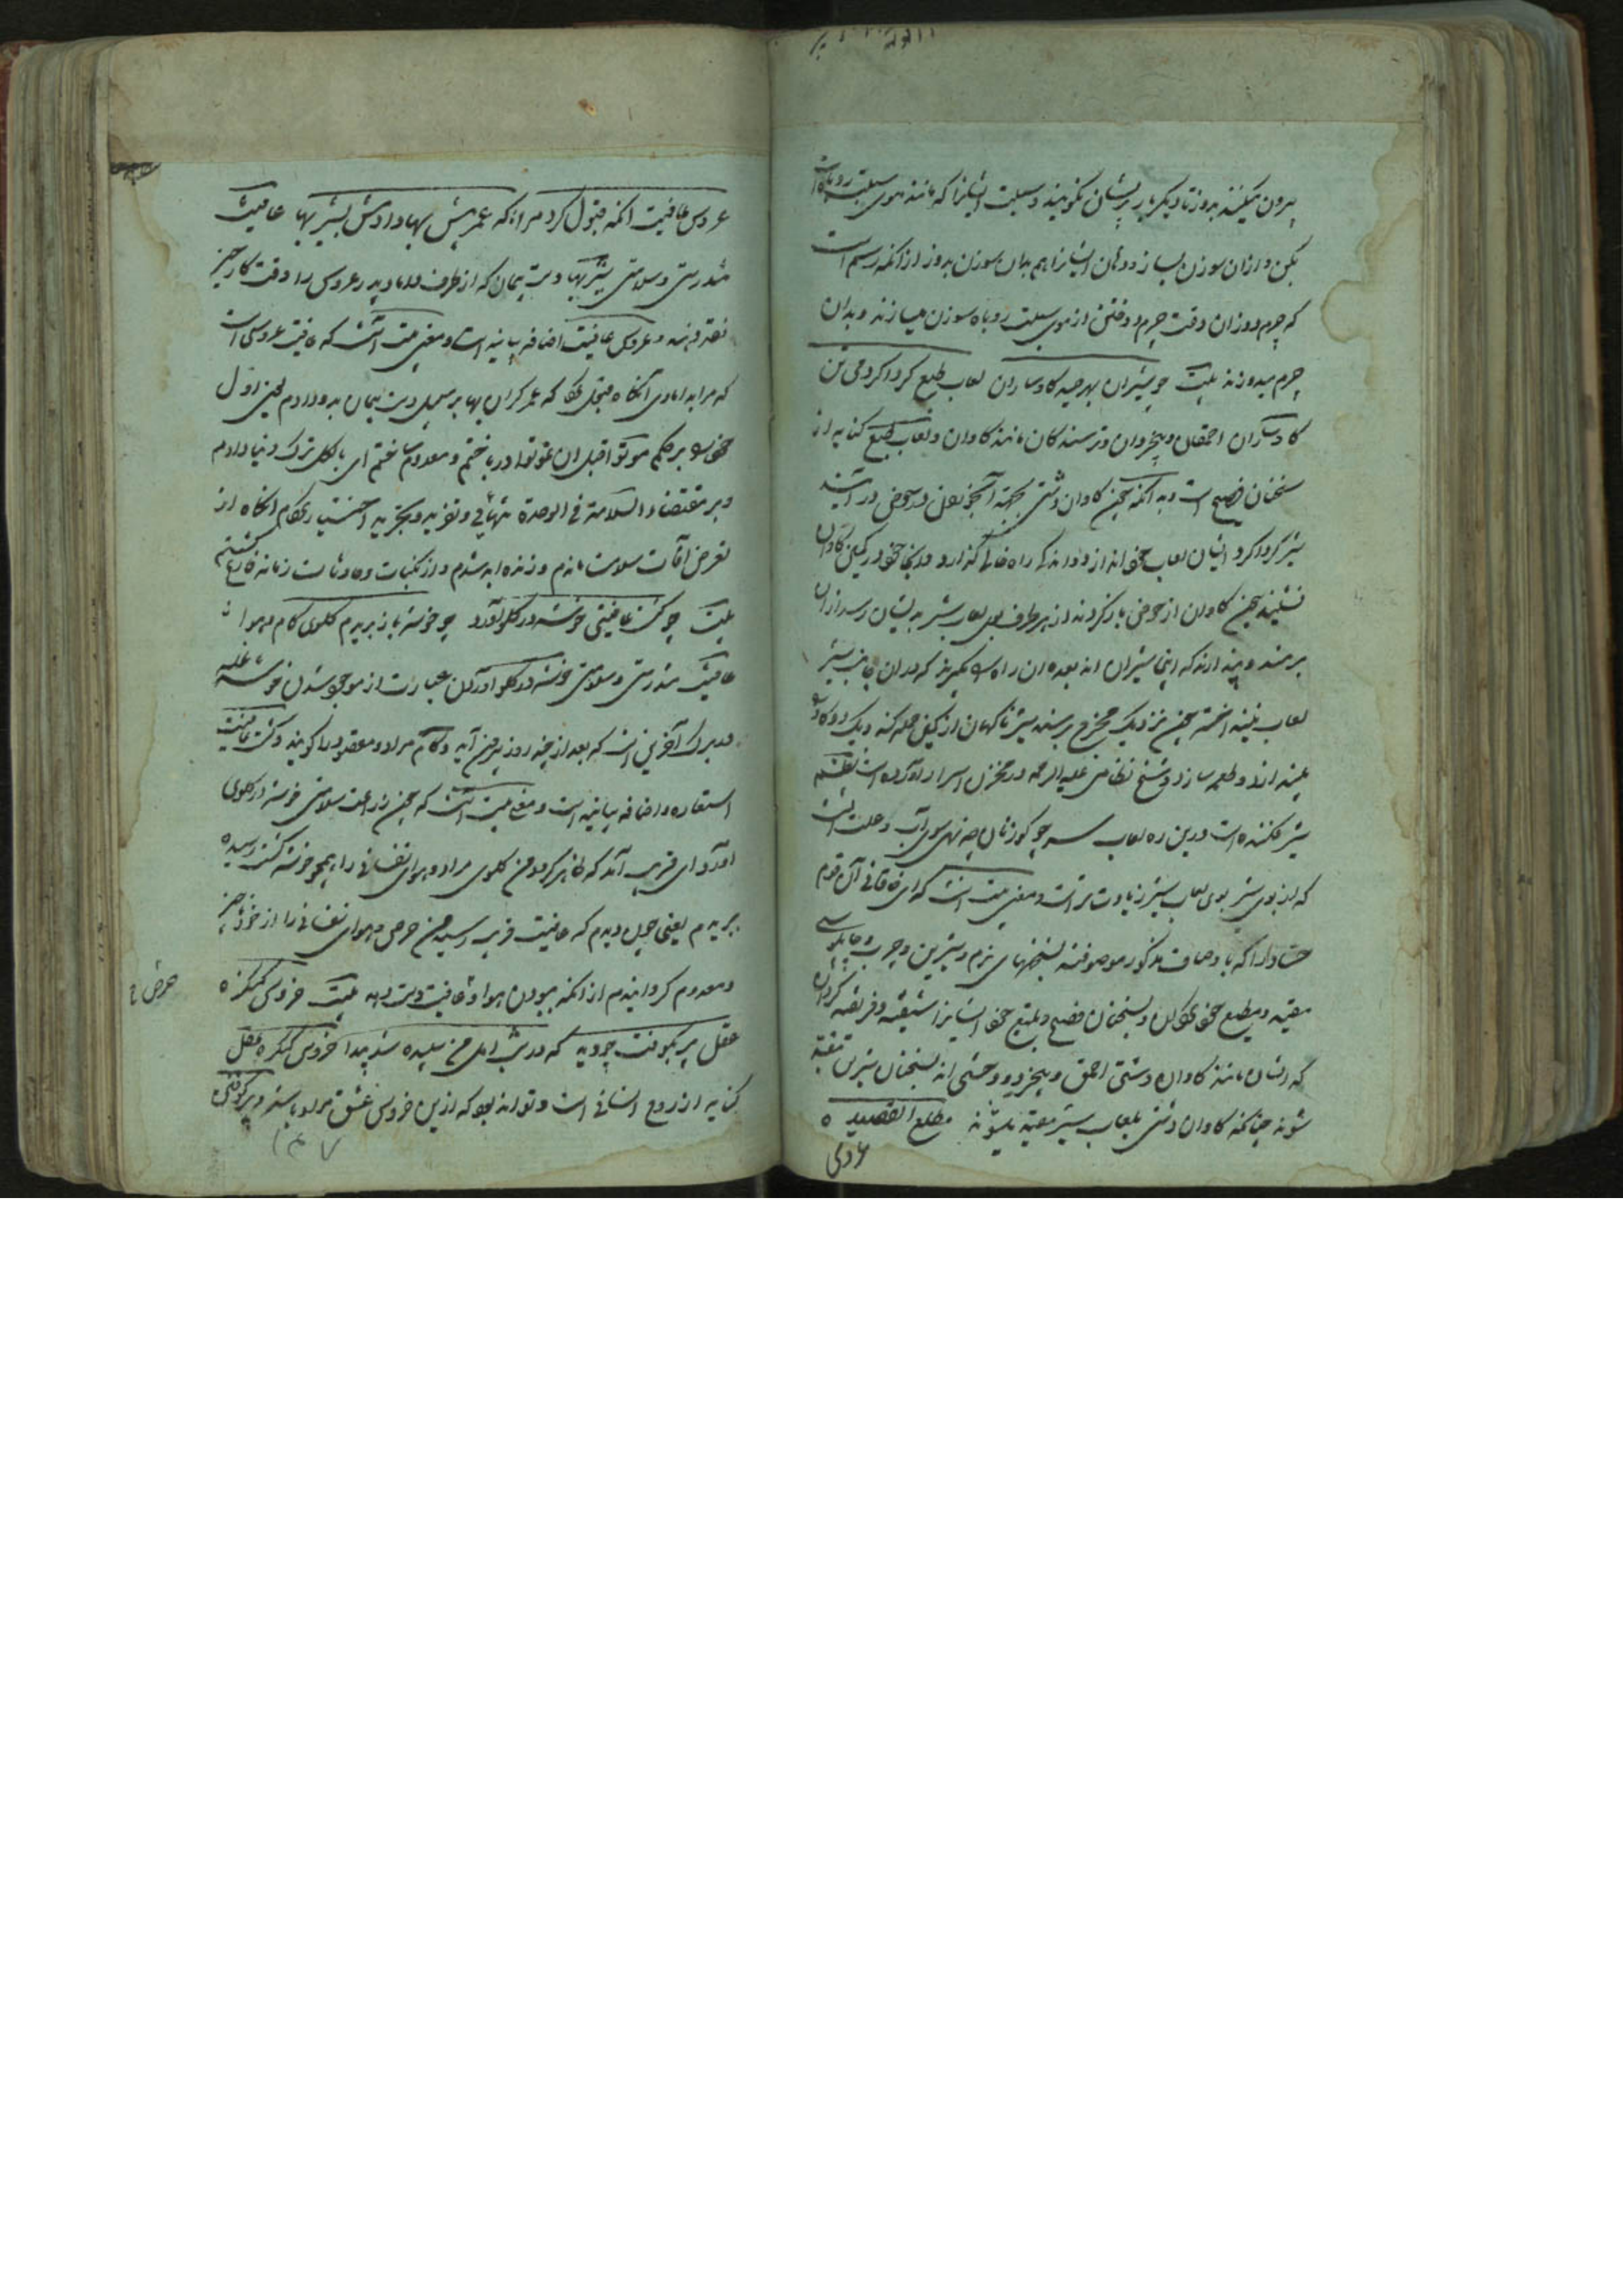 بیرون میکنند بدوز تا دیگر بار پریشان نگویند و سبلت ایشانرا که مانند موی سبلت روباه است
بکن و ازان سوزن بساز و دهان ایشانرا هم بدان سوزن بدوز ازانکه رسم است
که چرم دوزان وقت چرم دوختن از موی سبلت روباه سوزن میسازند و بدان
چرم میدوزند بیت چو شیران بهر صید کاوساران لعاب طبع کرداکرد می تن
کاوساران احمقان و بیخردان و ترسندکان مانند کاوان و لعاب طبع کنایه از
سخنان فصیح است و به انکه چون کاوان دشتی بجهة آبخوردن در حوضی در آیند
شیر کرداکرد ایشان لعاب خود اندازد و اندک راه خالی گذارد و در انجا خود در کمین کاوان
نشیند چون کاوان از حوض باز کردند از هر طرف بوی لعاب شیر به ایشان رسد ازان
برمند و پندارند که اینجا شیران اند بعده ان راه که در ان جانب شیر
لعاب نینداخته چون نزدیک مخرج برسند شیر ناکهان از کمین حمله کند و یک دو کاو را
بیندازد و طعمه سازد و شیخ نظامی علیه الرحمه در مخزن اسرار آورده است نظم
شیر فکنده است درین ره لعاب سر چو کوزنان چه نهی سوی آب و علت آنست
که از بوی شیر بوی لعاب شیر زیادت تر است و معنی بیت آنست که ای خاقانی آن قوم
حساد را که باوصاف مذکور موصوفند بسخنهای نرم و شیرین و چرب و چاپلوسی
مقید و مطیع خود کن و بسخنان فصیح و بلیغ خود ایشانرا شیفته و فریفته کردان
که ایشان مانند کاوان دشتی احمق و بیخرد و وحشی اند بسخنان شیرین مقید
شوند چنانکه کاوان دشتی بلعاب شیر مقید میشوند مطلع القصیده
عروس
عروس عافیت انکه قبول کرد مرا که عمر بیش بها دادمش بشیربها عافیت
تندرستی و سلامتی شیربها دست پیمان که از طرف داماد پدر عروس را وقت کار خیر
نقد دهند و عروس عافیت اضافه بیانیه است و معنی بیت آنست که عافیت عروسی است
که مرا به دامادی آنکاه قبول کرد که عمر کران بها بر سبیل دست پیمان بدو دادم یعنی اول
خود را بر حکم موتوا قبل ان تموتوا در باختم و معدوم ساختم ای بالکل ترک دنیا دادم
و بر مقتضاء السلامة فی الوحدة تنهائی و تفرید و تجرید اختیار کردم انکاه از
تعرض آفات سلامت ماندم و زنده ابد شدم و از نکبات و حادثات زمانه فارغ کشتم
بیت چو کشت عافیتم خوشه در کلو آورد چو خوشه باز بریدم کلوی کام و هوا
عافیت تندرستی و سلامتی خوشه در کلو آوردن عبارت از موجود شدن خوشه غله
در برک آخرین است که بعد از چند روز بیرون آید و کام مراد و مقصود را کویند و کشت عافیت
استعاره و اضافه بیانیه است و معنی بیت آنست که چون زراعت سلامتی خوشه در کلوی
آورد ای قریب آمد که ظاهر کردد من کلوی مراد و هوای نفسانی را همچو خوشه کشت رسیده
بریدم یعنی چون دیدم که عافیت قریب رسید من حرص و هوای نفسانی را از خود ناچیز
و معدوم کردانیدم ازانکه ببودن هوا و عافیت دست دهد بیت خروس کنکره
عقل پر بکوفت چو دید که در شب امل من سپیده شد پیدا خروس کنکره عقل
کنایه از روح انسانی است و تواند بود که ازین خروس عشق مراد باشد و پر کوفتن
حرص